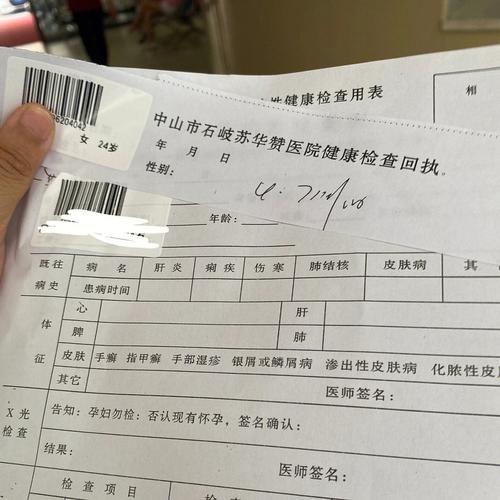 健康检查用表
相
女 24岁
中山市石岐苏华赞医院健康检查回执。
年 月 日
性别:
年龄:
既往病史 病名 肝炎 痢疾 伤寒 肺结核 皮肤病 其
患病时间
体征 心 肝
脾 肺
皮肤 手癣 指甲癣 手部湿疹 银屑或鳞屑病 渗出性皮肤病 化脓性皮
其它 医师签名:
X光检查 告知: 孕妇勿检: 否认现有怀孕, 签名确认:
结果: 医师签名:
检查项目 检查